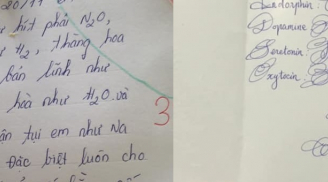 20/11
hít phải N₂O,
H₂, thăng hoa
bản lĩnh như
hòa như H₂O và
tụi em như Na
Đặc biệt luôn cho
3
Endorphin
Dopamine
Serotonin
Oxytocin